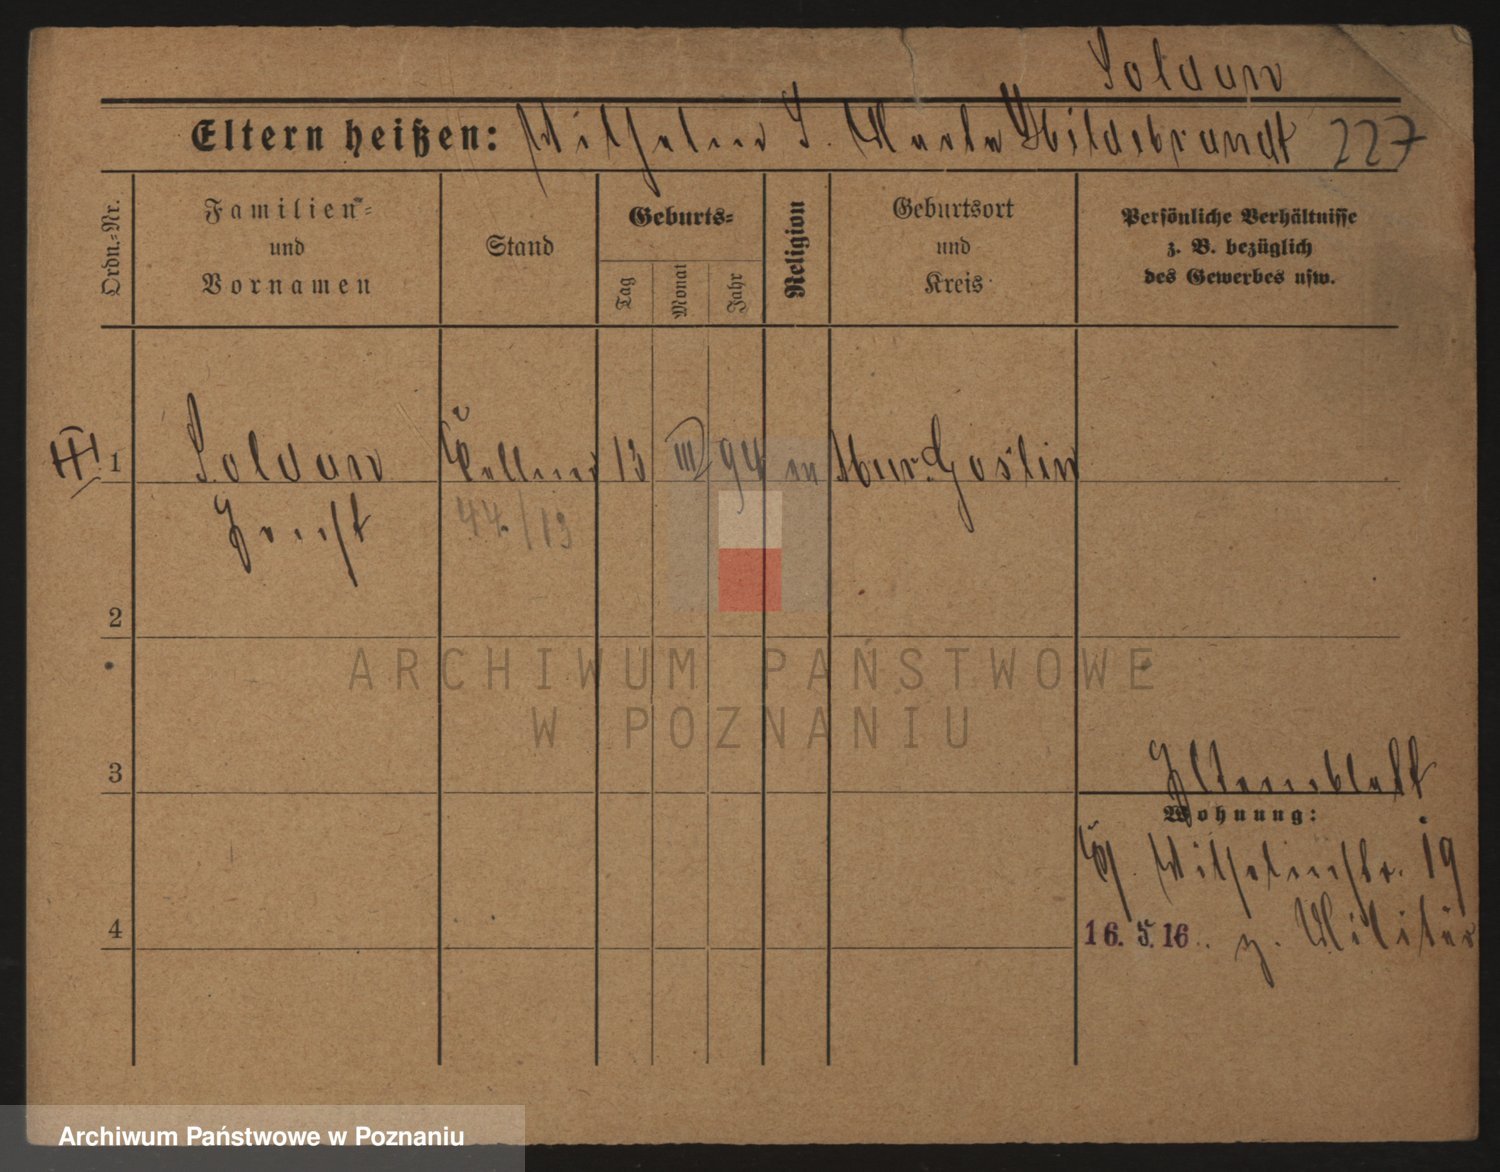 Soldan
Eltern heißen: Wilhelm S. Maria Hildebrandt 227
Ordn.-Nr.
Familien-
und
Vornamen
Stand
Geburts-
Tag
Monat
Jahr
Religion
Geburtsort
und
Kreis
Persönliche Verhältnisse
z. B. bezüglich
des Gewerbes usw.
1 Soldan Kellner 13 III 94 Mur. Goslin
Ernst 44./13
2
ARCHIWUM PAŃSTWOWE
W POZNANIU
3
Elternblatt
Wohnung:
Wilhelmstr. 19
4
16. 5. 16. z. Militär
Archiwum Państwowe w Poznaniu